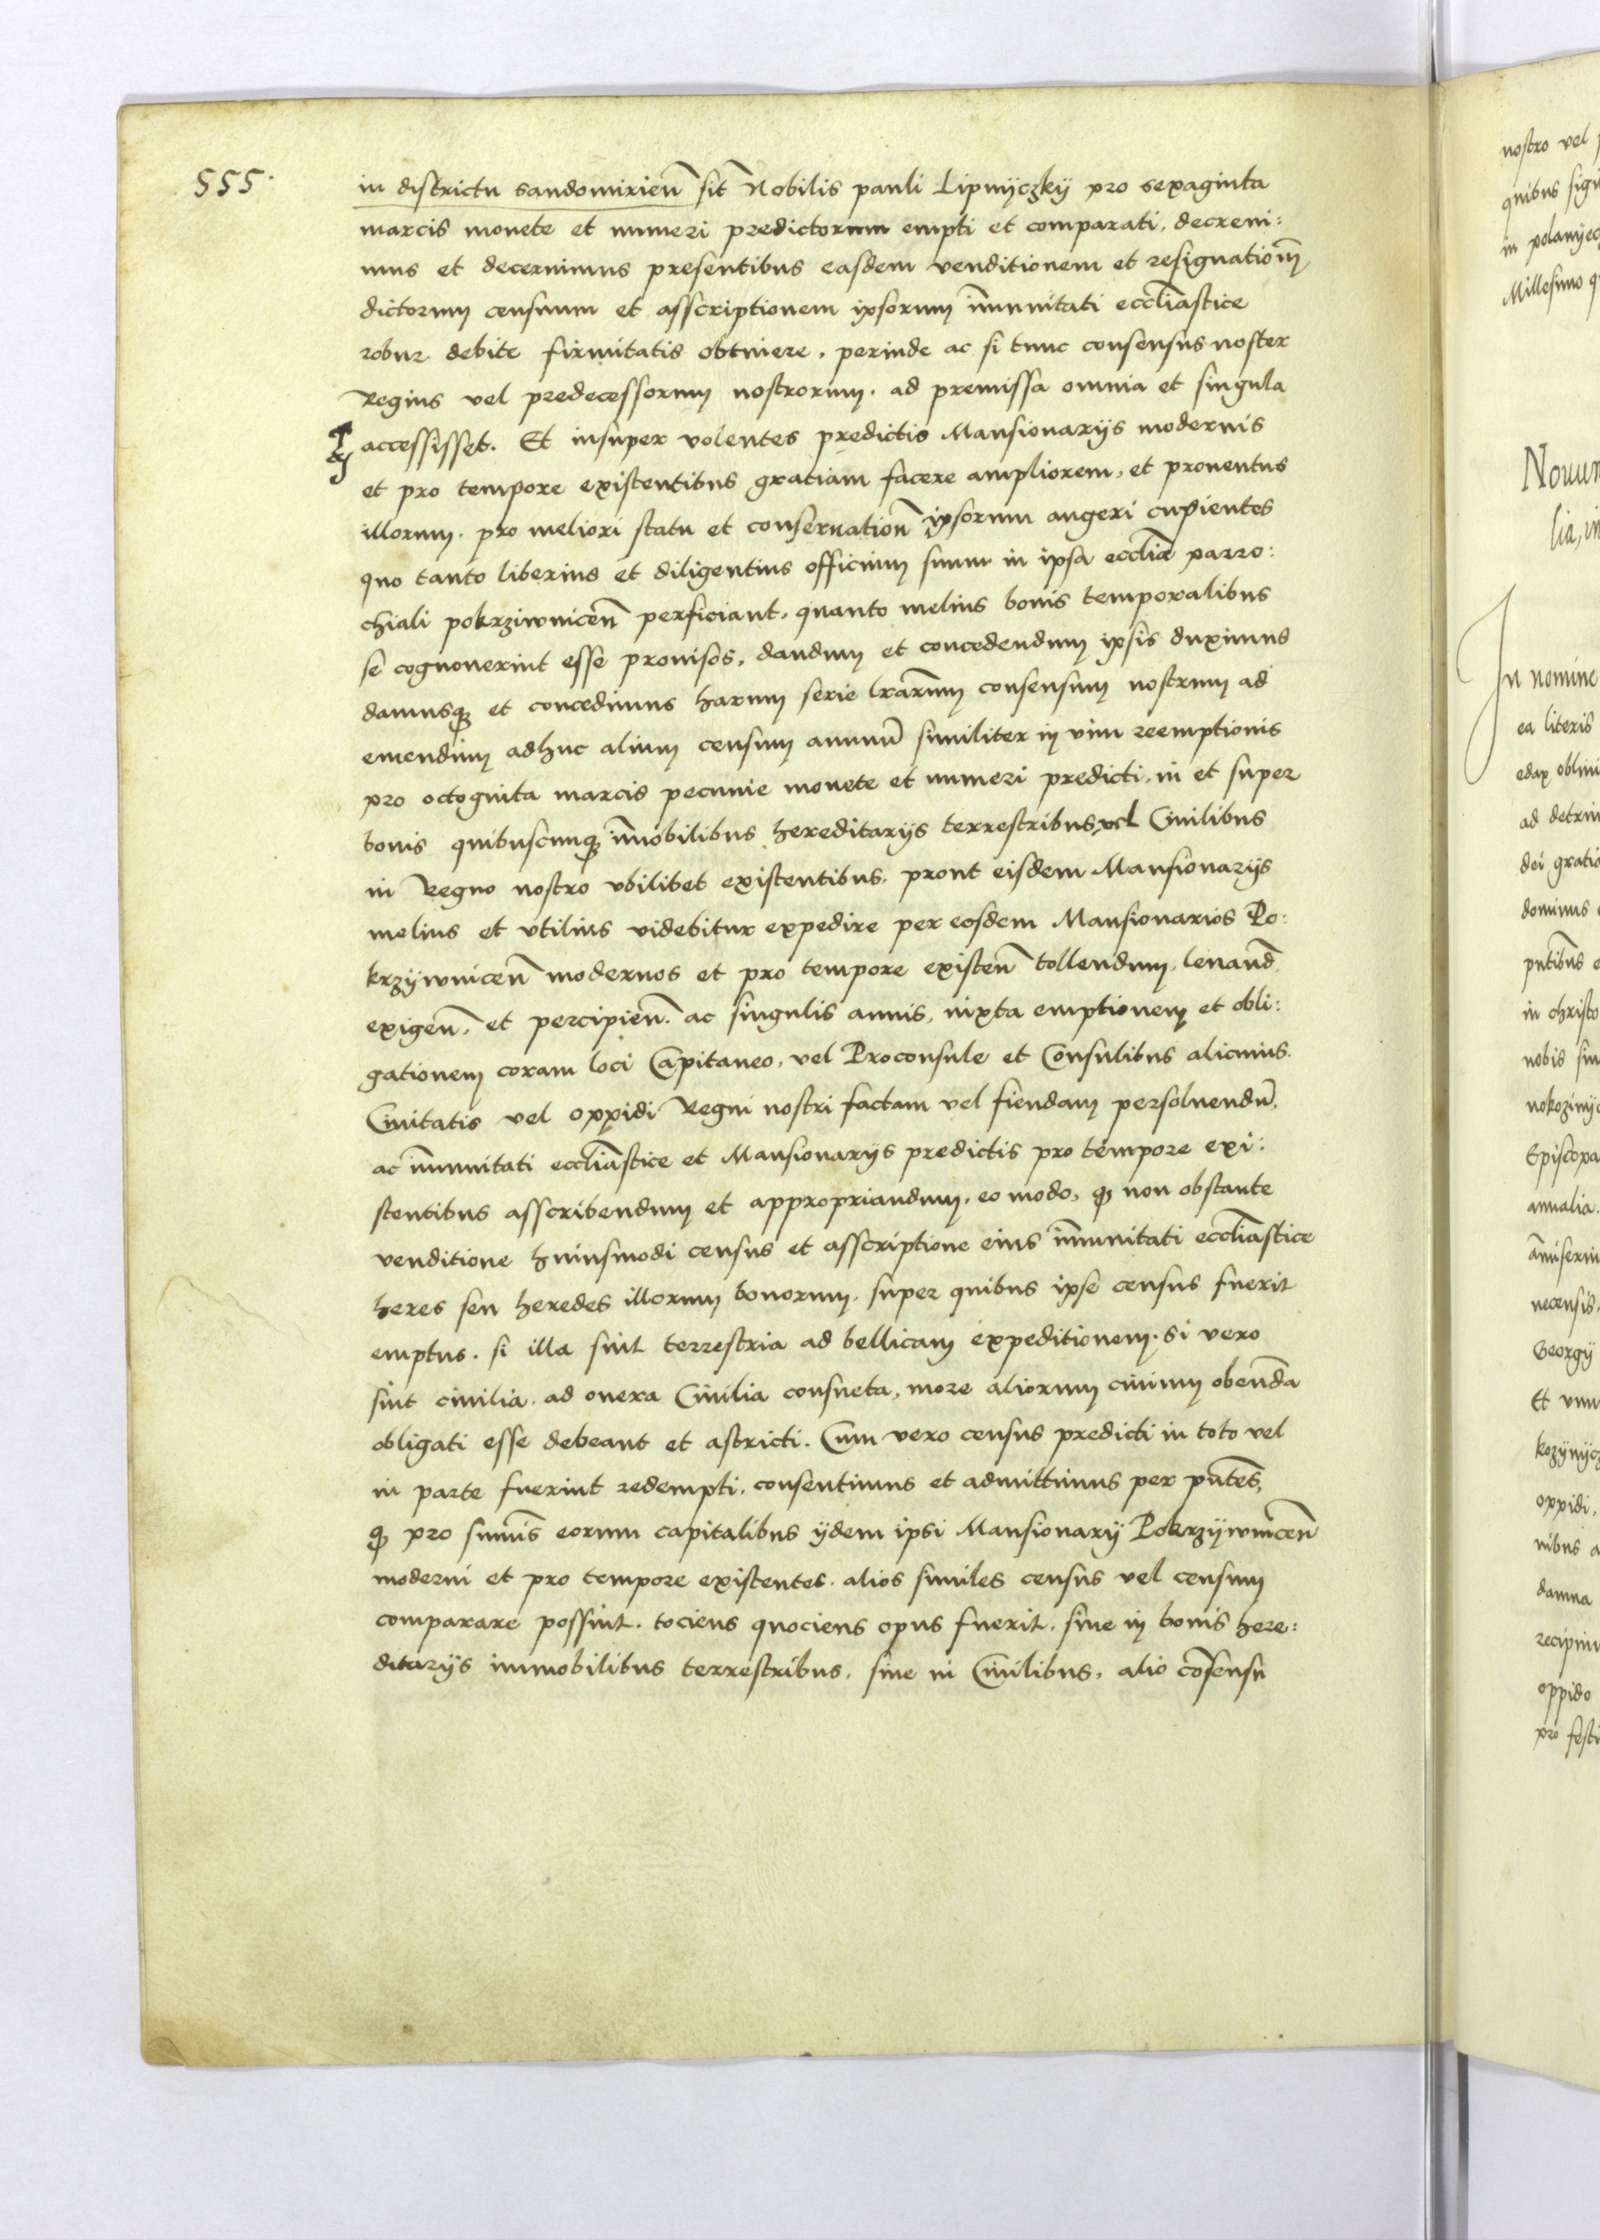 555.
in districtu sandomirień sit̃ Nobilis pauli Lipnÿczkÿ pro sexaginta
marcis monete et numeri predictorum empti et comparati, decreui:
mus et decernimus presentibus easdem venditionem et resignationẽ
dictorum censuum et asscriptionem ipsorum im̃unitati eccl̃iastice
robur debite firmitatis obtinere, perinde ac si tunc consensus noster
Regius vel predecessorum nostrorum. ad premissa omnia et singula
accessisset. Et insuper volentes predictis Mansionarijs modernis
et pro tempore existentibus gratiam facere ampliorem, et prouentus
illorum. pro meliori statu et conseruatioñ ipsorum augeri cupientes
quo tanto liberius et diligentius officium suum in ipsa eccl̃ia parro:
chiali pokrziwniceñ perficiant, quanto melius bonis temporalibus
se cognouerint esse prouisos, dandum et concedendum ipsis duximus
damusqȝ et concedimus harum serie lr̃arum consensum nostrum ad
emendum adhuc alium censum annuũ similiter in vim reemptionis
pro octoginta marcis pecunie monete et numeri predicti, in et super
bonis quibuscunqȝ im̃obilibus hereditarijs terrestribus vel Ciuilibus
in Regno nostro vbilibet existentibus, prout eisdem Mansionarijs
melius et vtilius videbitur expedire per eosdem Mansionarios Po:
krzÿwniceñ modernos et pro tempore existeñ tollendum, leuand̃
exigeñ, et percipieñ. ac singulis annis, iuxta emptionem et obli:
gationem coram loci Capitaneo, vel Proconsule et Consulibus alicuius
Ciuitatis vel oppidi Regni nostri factam vel fiendam persoluendũ,
ac im̃unitati eccl̃iastice et Mansionarijs predictis pro tempore exi:
stentibus asscribendum et appropriandum, eo modo, qȝ non obstante
venditione huiusmodi census et asscriptione eius im̃unitati eccl̃iastice
heres seu heredes illorum bonorum, super quibus ipse census fuerit
emptus. si illa sint terrestria ad bellicam expeditionem. si vero
sint ciuilia. ad onera Ciuilia consueta, more aliorum ciuium obeund̃a
obligati esse debeant et astricti. Cum vero census predicti in toto vel
in parte fuerint redempti, consentimus et admittimus per pñtes,
qȝ pro sum̃is eorum capitalibus ÿdem ipsi Mansionarÿ Pokrzÿwniceñ
moderni et pro tempore existentes. alios similes census vel censum
comparare possint. tociens quociens opus fuerit, siue in bonis here:
ditarijs immobilibus terrestribus, siue in Ciuilibus, alio cõsensu
nostro vel
quibus
in
Millesimo
Nouum
lia, in
In nomine
ea literis
edax
ad
dei gratia
dominus
pñtibus
in christo
nobis
Episcopa
annalia.
Georgÿ
Et
oppidi,
nibus
damna
oppido
pro festi